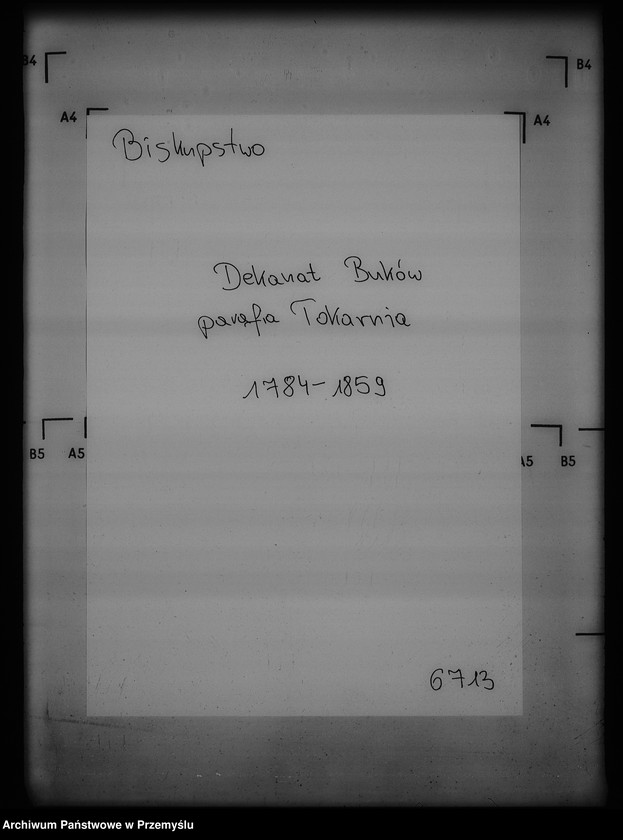 B4
B4
A4
A4
Biskupstwo
Dekanat Buków
parafia Tokarnia
1784-1859
B5 A5
A5 B5
6713
Archiwum Państwowe w Przemyślu